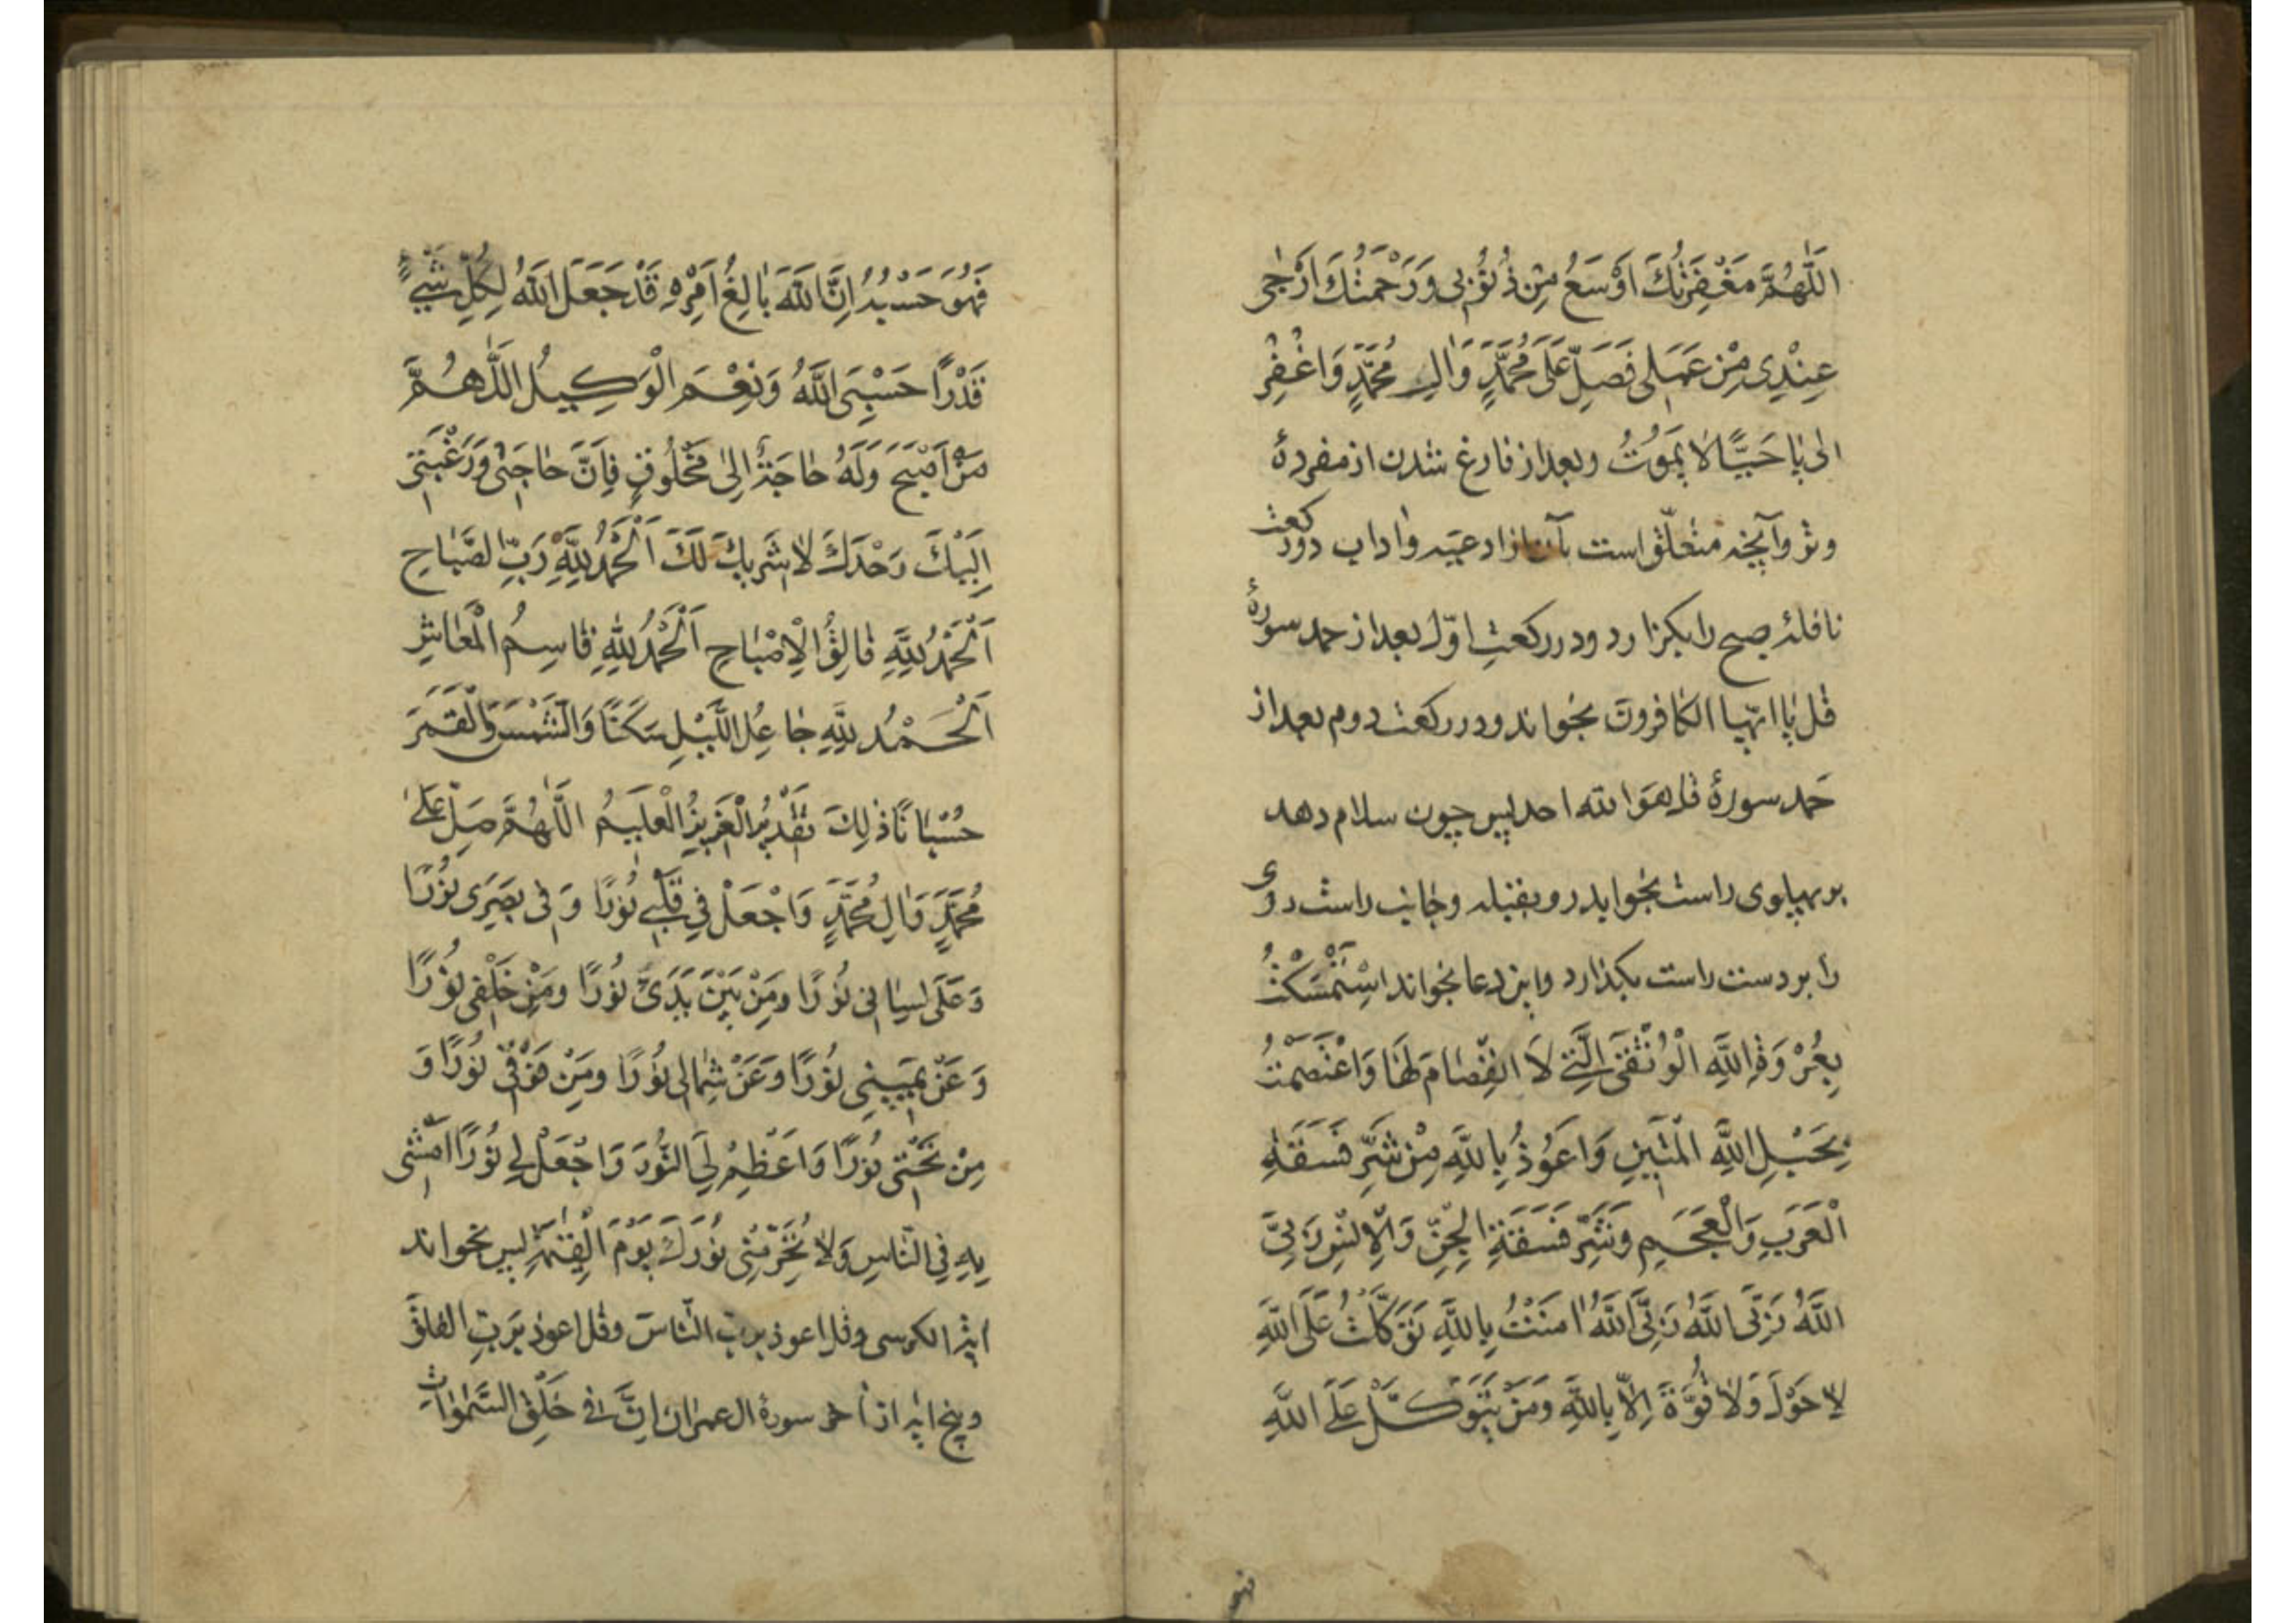 اَللّٰهُمَّ مَغْفِرَتُكَ اَوْسَعُ مِنْ ذُنُوْبِی وَرَحْمَتُكَ اَرْجٰی
عِنْدِی مِنْ عَمَلِی فَصَلِّ عَلَی مُحَمَّدٍ وَاٰلِ مُحَمَّدٍ وَاغْفِرْ
لی یٰا حَیًّا لاٰ یَمُوتُ وبعد از فارغ شدن از مفردهٔ
وتر وآنچه متعلّق است بآن از ادعیه واداب دورکعت
نافلهٔ صبح را بکزارد ودر رکعتِ اوّل بعد از حمد سورهٔ
قل یٰا ایّها الکٰافرون بخواند ودر رکعت دوم بعد از
حمد سورهٔ قل هو الله احد پس چون سلام دهد
بر پهلوی راست بخوابد رو بقبله وجٰانب راست روی
را بر دست راست بکذارد واین دعا بخواند اسْتَمْسَكْتُ
بِعُرْوَةِ اللَّهِ الْوُثْقَی الَّتِی لاَ انْفِصٰامَ لَهَا وَاعْتَصَمْتُ
بِحَبْلِ اللَّهِ الْمَتٖینِ وَاَعُوْذُ بِاللَّهِ مِنْ شَرِّ فَسَقَةِ
الْعَرَبِ وَالْعَجَمِ وَشَرِّ فَسَقَةِ الْجِنِّ وَالْاِنْسِ رَبِّیَ
اللَّهُ رَبِّیَ اللَّهُ رَبِّیَ اللَّهُ اٰمَنْتُ بِاللَّهِ تَوَكَّلْتُ عَلَی اللَّهِ
لاٰ حَوْلَ وَلاٰ قُوَّةَ اِلاّ بِاللَّهِ وَمَنْ یَتَوَكَّلْ عَلَی اللَّهِ
فهو
فَهُوَ حَسْبُهُ اِنَّ اللَّهَ بٰالِغُ اَمْرِهِ قَدْ جَعَلَ اللَّهُ لِكُلِّ شَیْءٍ
قَدْرًا حَسْبِیَ اللَّهُ وَنِعْمَ الْوَكِیلُ اَللّٰهُمَّ
مَنْ اَصْبَحَ وَلَهُ حٰاجَةٌ اِلیٰ مَخْلُوقٍ فَاِنَّ حٰاجَتٖی وَرَغْبَتٖی
اِلَیْكَ وَحْدَكَ لاٰ شَرٖیكَ لَكَ اَلْحَمْدُ لِلَّهِ رَبِّ الصَّبٰاحِ
اَلْحَمْدُ لِلَّهِ فٰالِقُ الْاِصْبٰاحِ اَلْحَمْدُ لِلَّهِ قٰاسِمُ الْمَعٰاشِ
اَلْحَمْدُ لِلَّهِ جٰاعِلُ اللَّیْلِ سَكَنًا وَالشَّمْسَ وَالْقَمَرَ
حُسْبٰانًا ذٰلِكَ تَقْدٖیرُ الْعَزٖیزِ الْعَلٖیمُ اَللّٰهُمَّ صَلِّ عَلیٰ
مُحَمَّدٍ وَاٰلِ مُحَمَّدٍ وَاجْعَلْ فِی قَلْبٖی نُوْرًا وَفٖی بَصَرِی نُوْرًا
وَعَلَی لِسٰانٖی نُوْرًا ومِنْ بَیْنَ یَدَیَّ نُوْرًا ومِنْ خَلْفٖی نُوْرًا
وَعَنْ یَمٖینِی نُوْرًا وَعَنْ شِمٰالٖی نُوْرًا ومِنْ فَوْقٖی نُوْرًا وَ
مِنْ تَحْتٖی نُوْرًا وَاَعْظِمْ لِیَ النُّورَ وَاجْعَلْ لِی نُوْرًا اَمْشٖی
بِهِ فِی النّٰاسِ وَلاٰ تَحْرِمْنِی نُوْرَكَ یَوْمَ الْقِیٰمَةِ پس بخواند
ایة الکرسی وقل اعوذ بربّ النّاس وقل اعوذ بربّ الفلق
وپنج ایه از آخر سورهٔ ال عمران اِنَّ فٖی خَلْقِ السَّمٰوٰاتِ